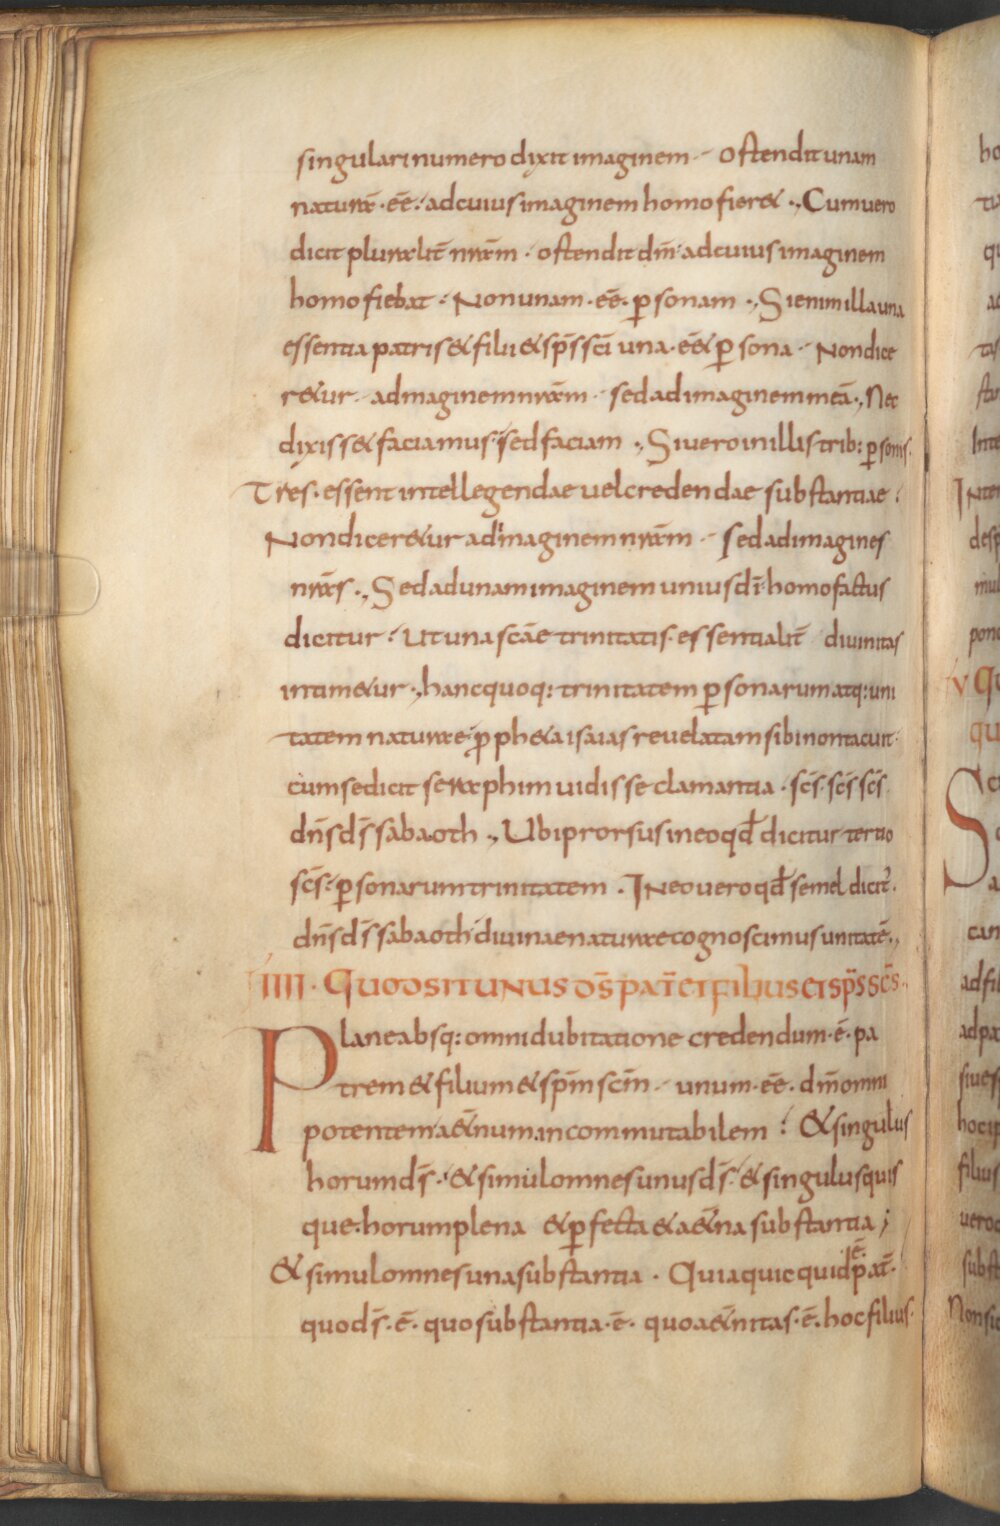 singulari numero dixit imaginem · ostendit unam
naturā · eē · ad cuius imaginem homo fier& ·, Cum uero
dicit pluralit̄ nrām · ostendit dm̄ · ad cuius imaginem
homo fiebat · Non unam · eē · p̲sonam ·, Si enim illa una
essentia patris & filii & sp̄s sc̄i una · eē& p̲sona · Non dice
r&ur · ad maginem nrām · sed ad imaginem meā ·, Nec
dixiss& faciamus · sed faciam ·, Si uero in illis trib: p̲sonis ·
Tres · essent intellegendae uel credendae substantiae ·
Non dicer&ur ad imaginem nrām · sed ad imagines
nrās ·, Sed ad unam imaginem unius dī · homo factus
dicitur · Ut una scāe trinitatis · essentialit̄ diuinitas
intim&ur ·, hanc quoq: trinitatem p̲sonarum atq: uni
tatem naturae · p̲ph&a isaias reuelatam sibi non tacuit ·
cum se dicit seraphim uidisse clamantia · sc̄s · sc̄s sc̄s ·
dn̄s ds̄ sabaoth ·, Ubi prorsus in eo qd̄ dicitur tertio
sc̄s · p̲sonarum trinitatem · In eo uero qd̄ semel dicit̄ ·
dn̄s ds̄ sabaoth diuinae naturae cognoscimus unitatē ·,
IIII · Quod sit unus ds̄ pat̄ et filius et sp̄s sc̄s ·
Plane absq: omni dubitatione credendum · ē · pa
trem & filium & sp̄m sc̄m · unum · eē · dm̄ omni
potentem a&̄num incommutabilem · & singulus
horum ds̄ · & simul omnes unus ds̄ · & singulus quis
que · horum plena & p̲fecta & a&̄na substantia ;
& simul omnes una substantia · Quia quicquid ē · pat̄ ·
quo ds̄ · ē · quo substantia · ē · quo a&̄nitas · ē · hoc filius ·